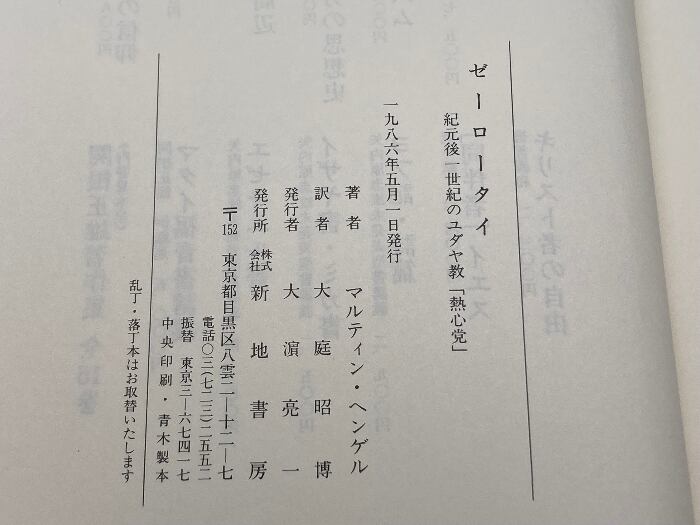 ゼーロータイ
紀元後一世紀のユダヤ教「熱心党」
一九八六年五月一日発行
著者 マルティン・ヘンゲル
訳者 大庭昭博
発行者 大濵亮一
発行所 株式会社 新地書房
〒152 東京都目黒区八雲二―十二―七
電話〇三(七二三)二五五二
振替 東京三―六七四一七
中央印刷・青木製本
乱丁・落丁本はお取替いたします
キリスト者の自由